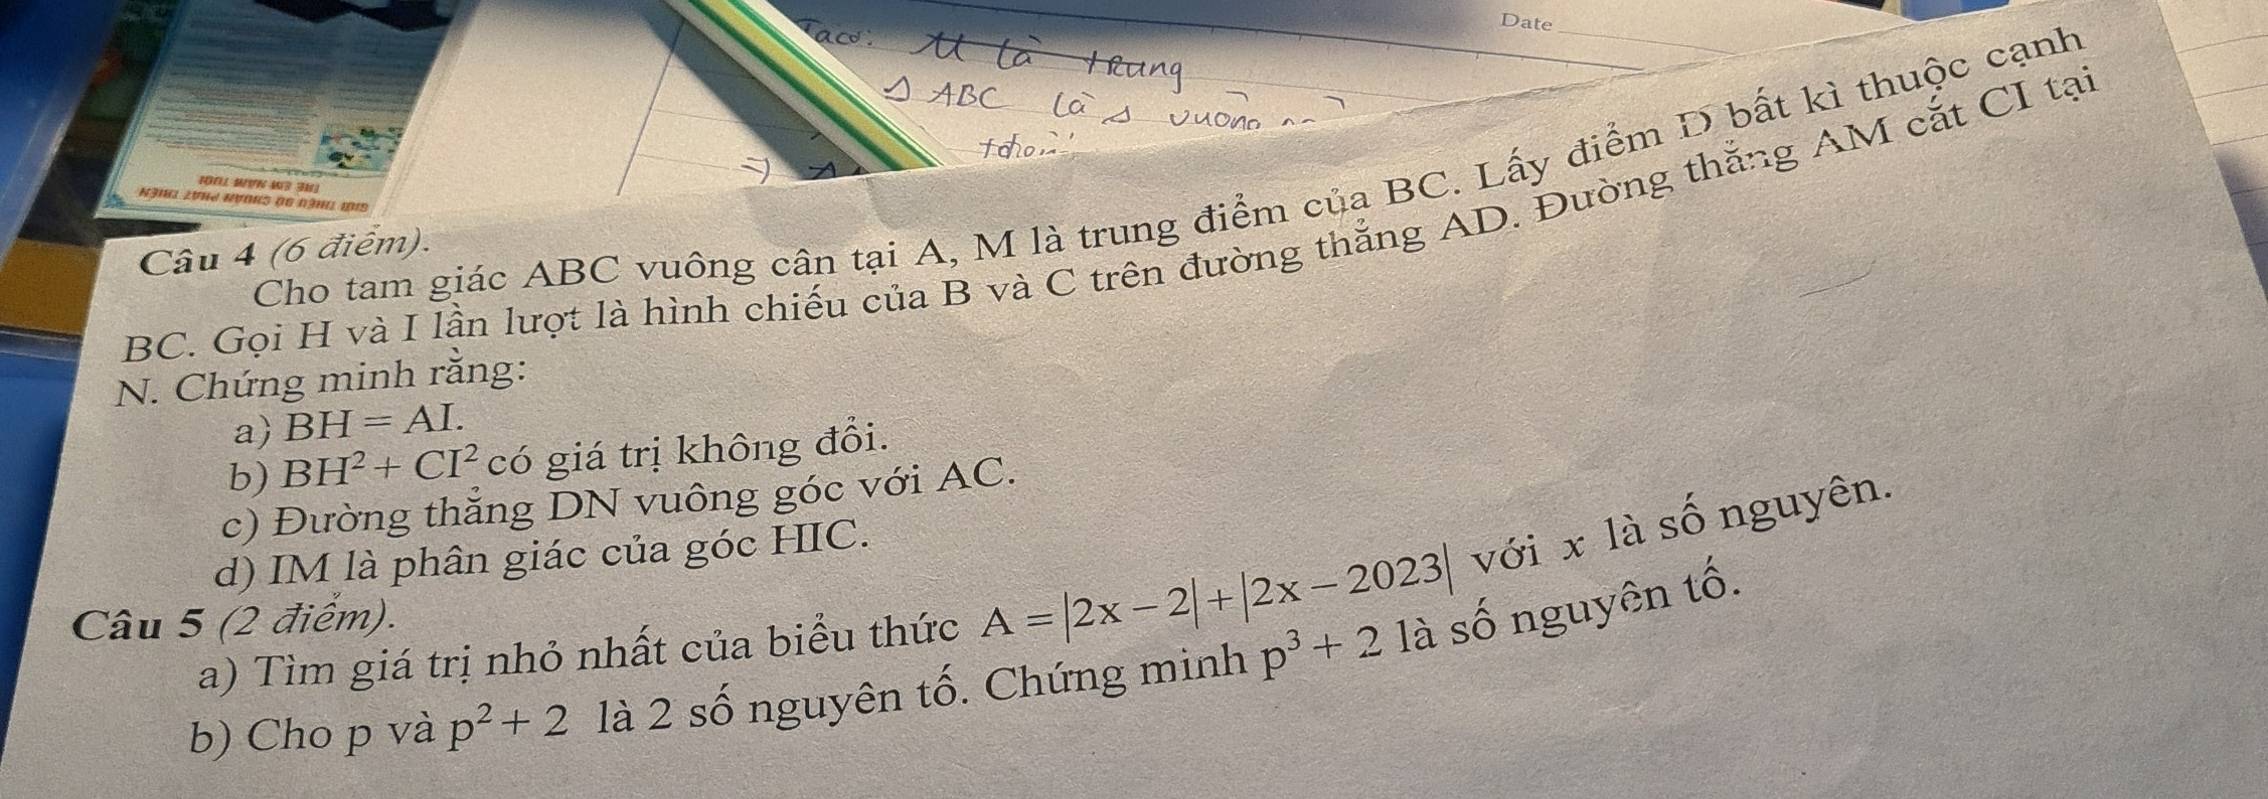 Date
Taco: M là trung
Δ ABC là Δ vuông
⇒
GIỚI THIỆU BỘ CHUẨN PHÁT TRIỂN
TRẺ EM NĂM TUỔI
Câu 4 (6 điểm).
Cho tam giác ABC vuông cân tại A, M là trung điểm của BC. Lấy điểm D bất kì thuộc cạnh
BC. Gọi H và I lần lượt là hình chiếu của B và C trên đường thẳng AD. Đường thẳng AM cắt CI tại
N. Chứng minh rằng:
a) BH = AI.
b) BH² + CI² có giá trị không đổi.
c) Đường thẳng DN vuông góc với AC.
d) IM là phân giác của góc HIC.
Câu 5 (2 điểm).
a) Tìm giá trị nhỏ nhất của biểu thức A = |2x − 2| + |2x − 2023| với x là số nguyên.
b) Cho p và p² + 2 là 2 số nguyên tố. Chứng minh p³ + 2 là số nguyên tố.